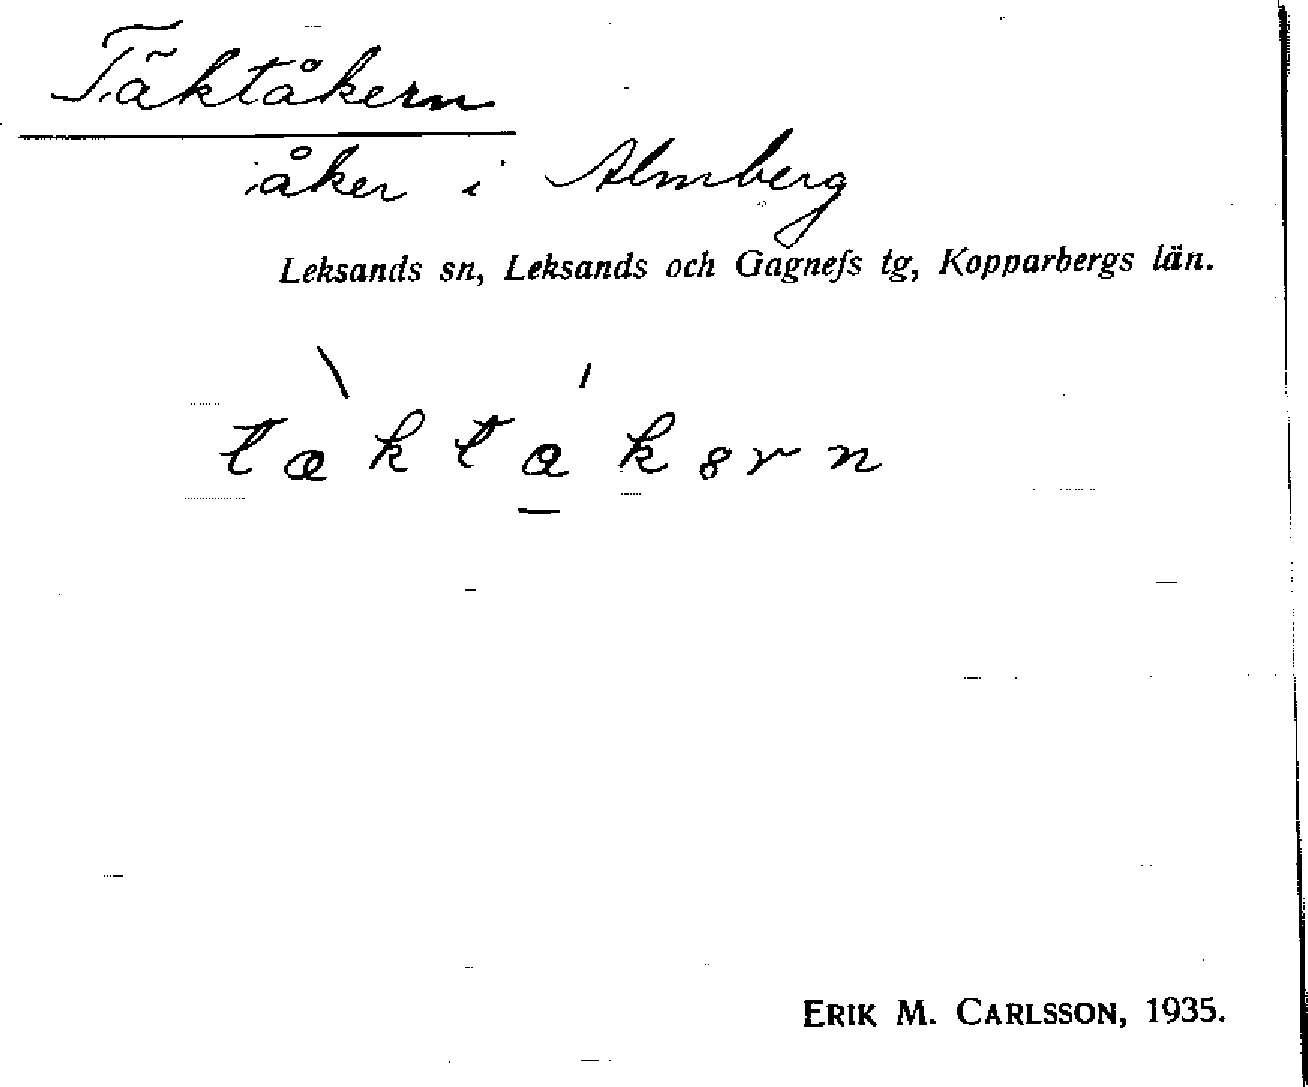 Täktåkern
åker i Almberg
Leksands sn, Leksands och Gagnefs tg, Kopparbergs län.
tæ̀ktá̱kərn
ERIK M. CARLSSON, 1935.